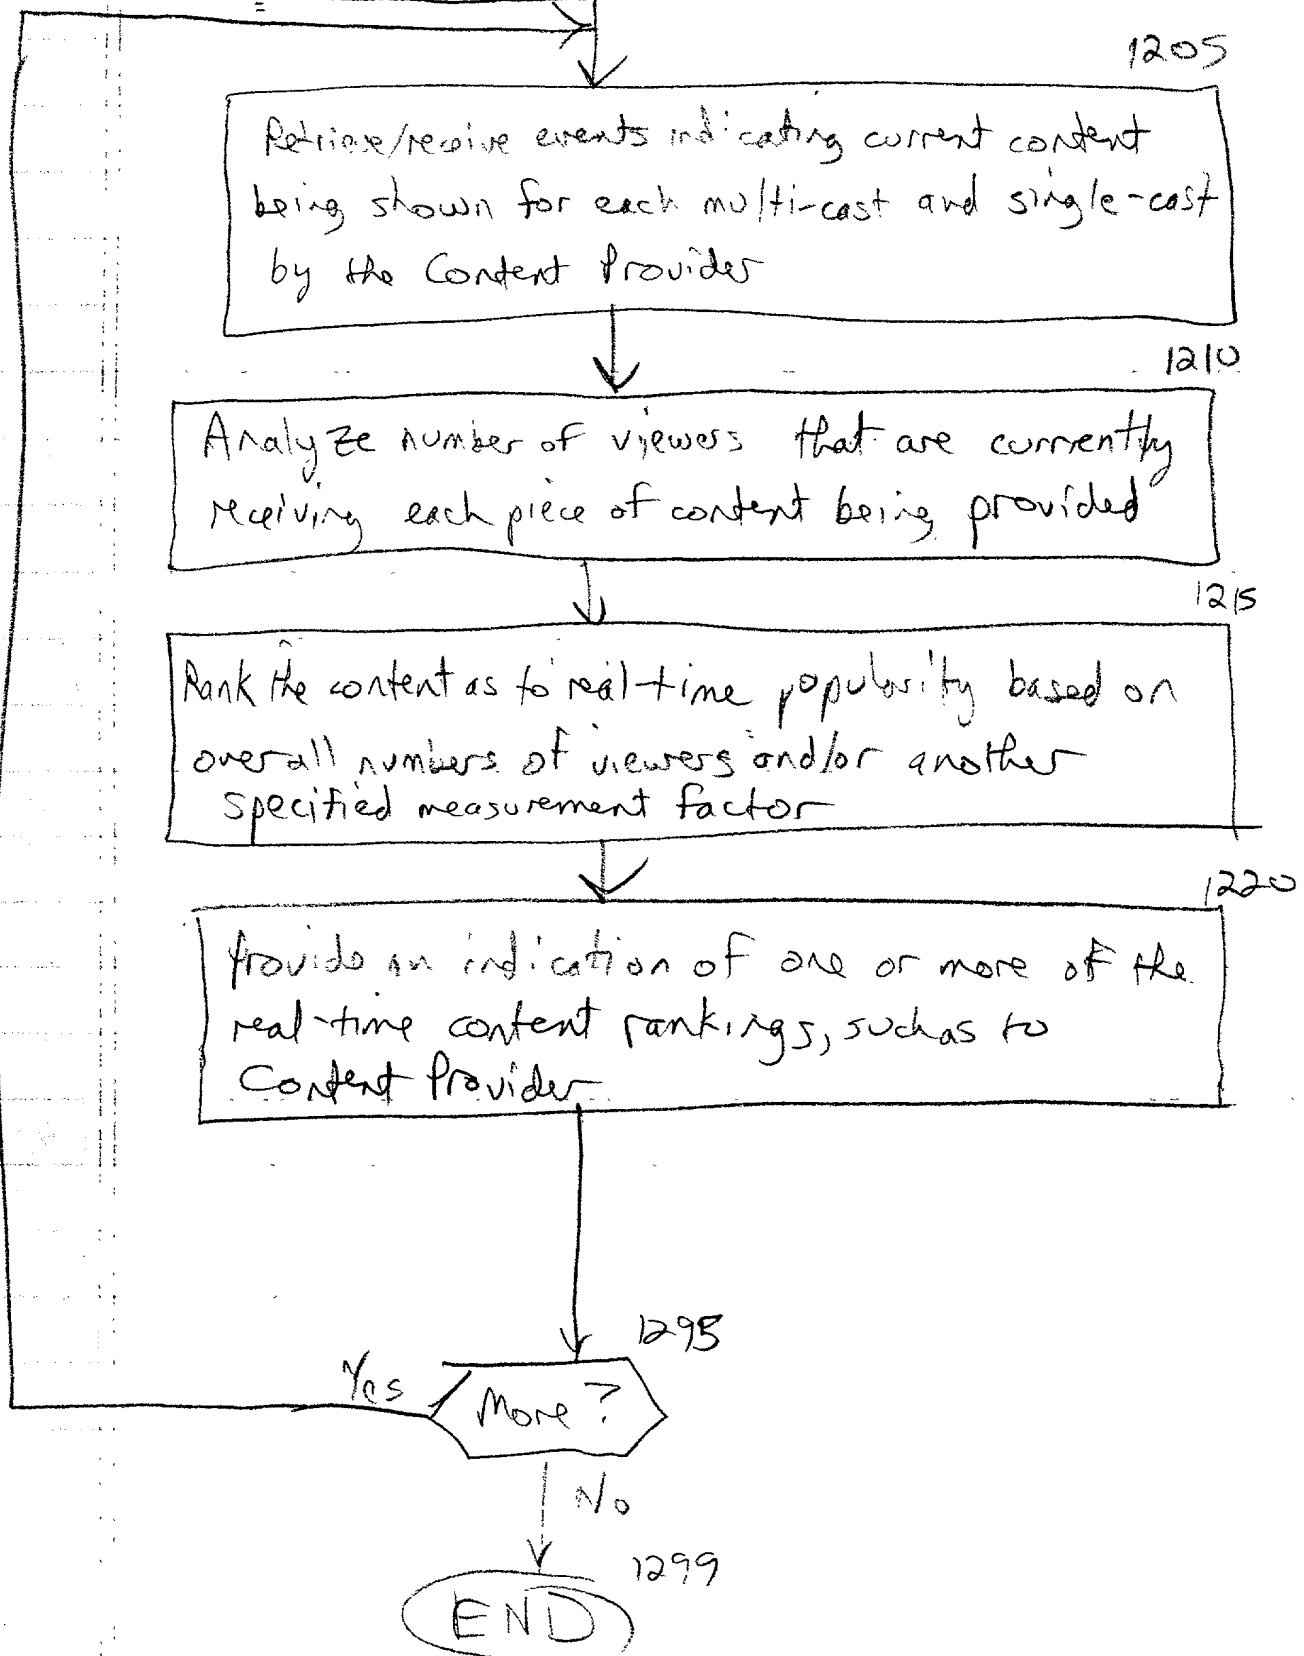 1205
Retrieve/receive events indicating current content
being shown for each multi-cast and single-cast
by the Content Provider
1210
Analyze number of viewers that are currently
receiving each piece of content being provided
1215
Rank the content as to real-time popularity based on
overall numbers of viewers and/or another
specified measurement factor
1220
Provide an indication of one or more of the
real-time content rankings, such as to
Content Provider
1295
Yes
More?
No
1299
END